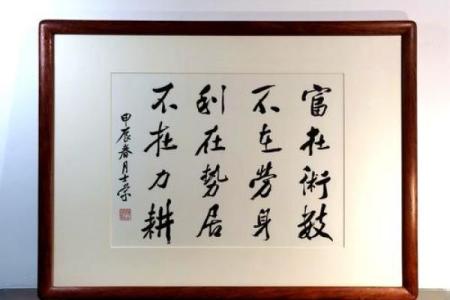 富在術數
不在勞身
利在勢居
不在力耕
甲辰春月士榮